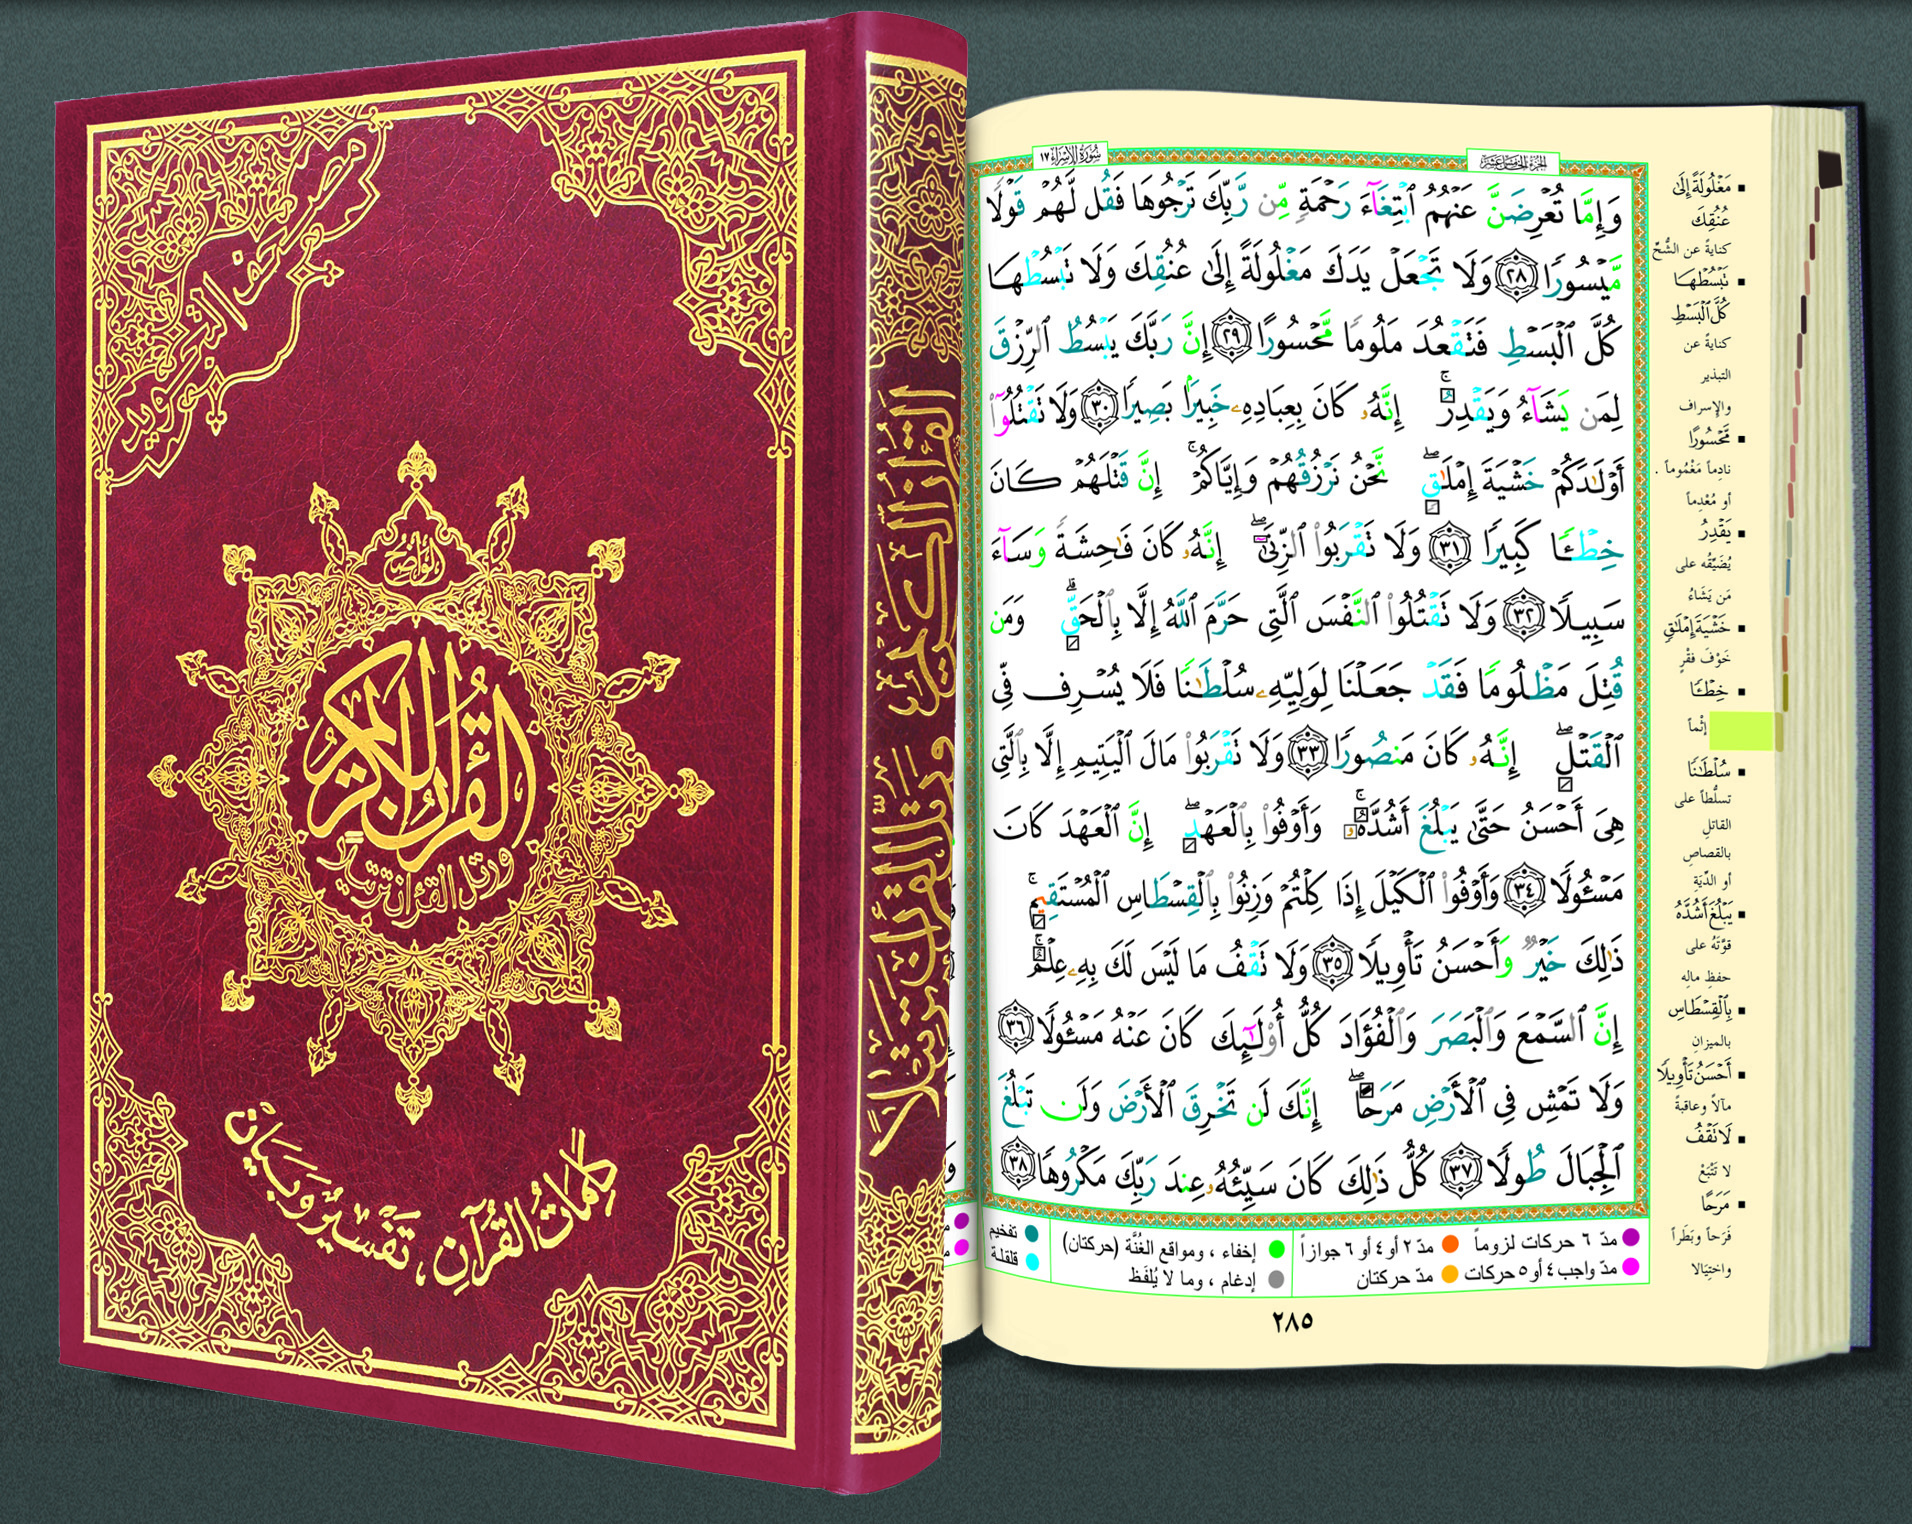 مصحف التجويد
الواضح
القرآن الكريم
ورتل القرآن ترتيلا
كلمات القرآن، تفسير وبيان
القرآن الكريم
ورتل القرآن ترتيلاً
سُورَةُ الإِسْرَاءِ ١٧
الجزء الخامس عشر
وَإِمَّا تُعْرِضَنَّ عَنْهُمُ ٱبْتِغَآءَ رَحْمَةٍ مِّن رَّبِّكَ تَرْجُوهَا فَقُل لَّهُمْ قَوْلًا
مَّيْسُورًا ٢٨ وَلَا تَجْعَلْ يَدَكَ مَغْلُولَةً إِلَىٰ عُنُقِكَ وَلَا تَبْسُطْهَا
كُلَّ ٱلْبَسْطِ فَتَقْعُدَ مَلُومًا مَّحْسُورًا ٢٩ إِنَّ رَبَّكَ يَبْسُطُ ٱلرِّزْقَ
لِمَن يَشَآءُ وَيَقْدِرُ ۚ إِنَّهُۥ كَانَ بِعِبَادِهِۦ خَبِيرًۢا بَصِيرًا ٣٠ وَلَا تَقْتُلُوٓا۟
أَوْلَـٰدَكُمْ خَشْيَةَ إِمْلَـٰقٍ ۖ نَّحْنُ نَرْزُقُهُمْ وَإِيَّاكُمْ ۚ إِنَّ قَتْلَهُمْ كَانَ
خِطْـًٔا كَبِيرًا ٣١ وَلَا تَقْرَبُوا۟ ٱلزِّنَىٰٓ ۖ إِنَّهُۥ كَانَ فَـٰحِشَةً وَسَآءَ
سَبِيلًا ٣٢ وَلَا تَقْتُلُوا۟ ٱلنَّفْسَ ٱلَّتِى حَرَّمَ ٱللَّهُ إِلَّا بِٱلْحَقِّ ۗ وَمَن
قُتِلَ مَظْلُومًا فَقَدْ جَعَلْنَا لِوَلِيِّهِۦ سُلْطَـٰنًا فَلَا يُسْرِف فِّى
ٱلْقَتْلِ ۖ إِنَّهُۥ كَانَ مَنصُورًا ٣٣ وَلَا تَقْرَبُوا۟ مَالَ ٱلْيَتِيمِ إِلَّا بِٱلَّتِى
هِىَ أَحْسَنُ حَتَّىٰ يَبْلُغَ أَشُدَّهُۥ ۚ وَأَوْفُوا۟ بِٱلْعَهْدِ ۖ إِنَّ ٱلْعَهْدَ كَانَ
مَسْـُٔولًا ٣٤ وَأَوْفُوا۟ ٱلْكَيْلَ إِذَا كِلْتُمْ وَزِنُوا۟ بِٱلْقِسْطَاسِ ٱلْمُسْتَقِيمِ ۚ
ذَٰلِكَ خَيْرٌ وَأَحْسَنُ تَأْوِيلًا ٣٥ وَلَا تَقْفُ مَا لَيْسَ لَكَ بِهِۦ عِلْمٌ ۚ
إِنَّ ٱلسَّمْعَ وَٱلْبَصَرَ وَٱلْفُؤَادَ كُلُّ أُو۟لَـٰٓئِكَ كَانَ عَنْهُ مَسْـُٔولًا ٣٦
وَلَا تَمْشِ فِى ٱلْأَرْضِ مَرَحًا ۖ إِنَّكَ لَن تَخْرِقَ ٱلْأَرْضَ وَلَن تَبْلُغَ
ٱلْجِبَالَ طُولًا ٣٧ كُلُّ ذَٰلِكَ كَانَ سَيِّئُهُۥ عِندَ رَبِّكَ مَكْرُوهًا ٣٨
مَغْلُولَةً إِلَىٰ
عُنُقِكَ
كنايةً عن الشُّحِّ
تَبْسُطْهَا
كُلَّ ٱلْبَسْطِ
كنايةً عن
التبذير
والإسراف
مَّحْسُورًا
نادِماً مَغْمُوماً .
أو مُعْدِماً
يَقْدِرُ
يُضَيِّقُه على
مَن يَشَاءُ
خَشْيَةَ إِمْلَـٰقٍ
خَوْفَ فَقْرٍ
خِطْـًٔا
إثْماً
سُلْطَـٰنًا
تسلُّطاً على
القاتلِ
بالقصاصِ
أو الدِّيَةِ
يَبْلُغَ أَشُدَّهُ
قوَّتَهُ على
حفظ مالِهِ
بِٱلْقِسْطَاسِ
بالميزانِ
أَحْسَنُ تَأْوِيلًا
مآلاً وعاقبةً
لَا تَقْفُ
لا تَتَّبِعْ
مَرَحًا
فَرَحاً وبَطَراً
واختِيَالا
مدّ ٦ حركات لزوماً
مدّ واجب ٤ أو ٥ حركات
مدّ ٢ أو ٤ أو ٦ جوازاً
مدّ حركتان
إخفاء ، ومواقع الغُنَّة (حركتان)
إدغام ، وما لا يُلفَظ
تفخيم
قلقلة
٢٨٥